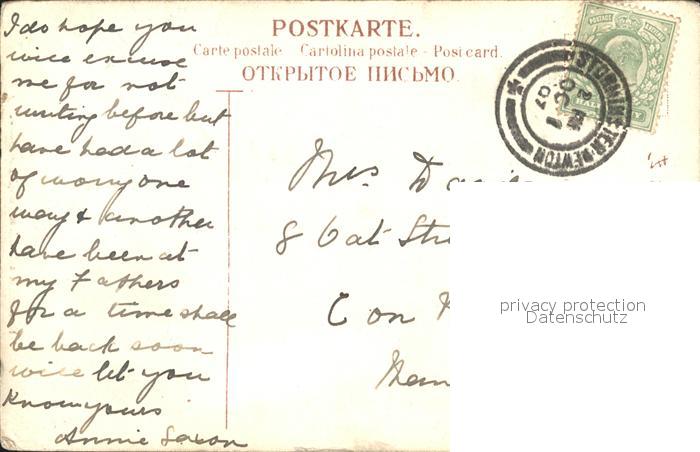 POSTKARTE.
Carte postale - Cartolina postale - Post card.
ОТКРЫТОЕ ПИСЬМО.
POSTAGE REVENUE
HALFPENNY
STURMINSTER-NEWTON
2 PM
OC 1
07
I do hope you
will excuse
me for not
writing before but
have had a lot
of worry one
way & another
have been at
my Fathers
for a time shall
be back soon
will let you
know yours
Annie Saxon
Mrs
8 Oat Str
Con
privacy protection
Datenschutz